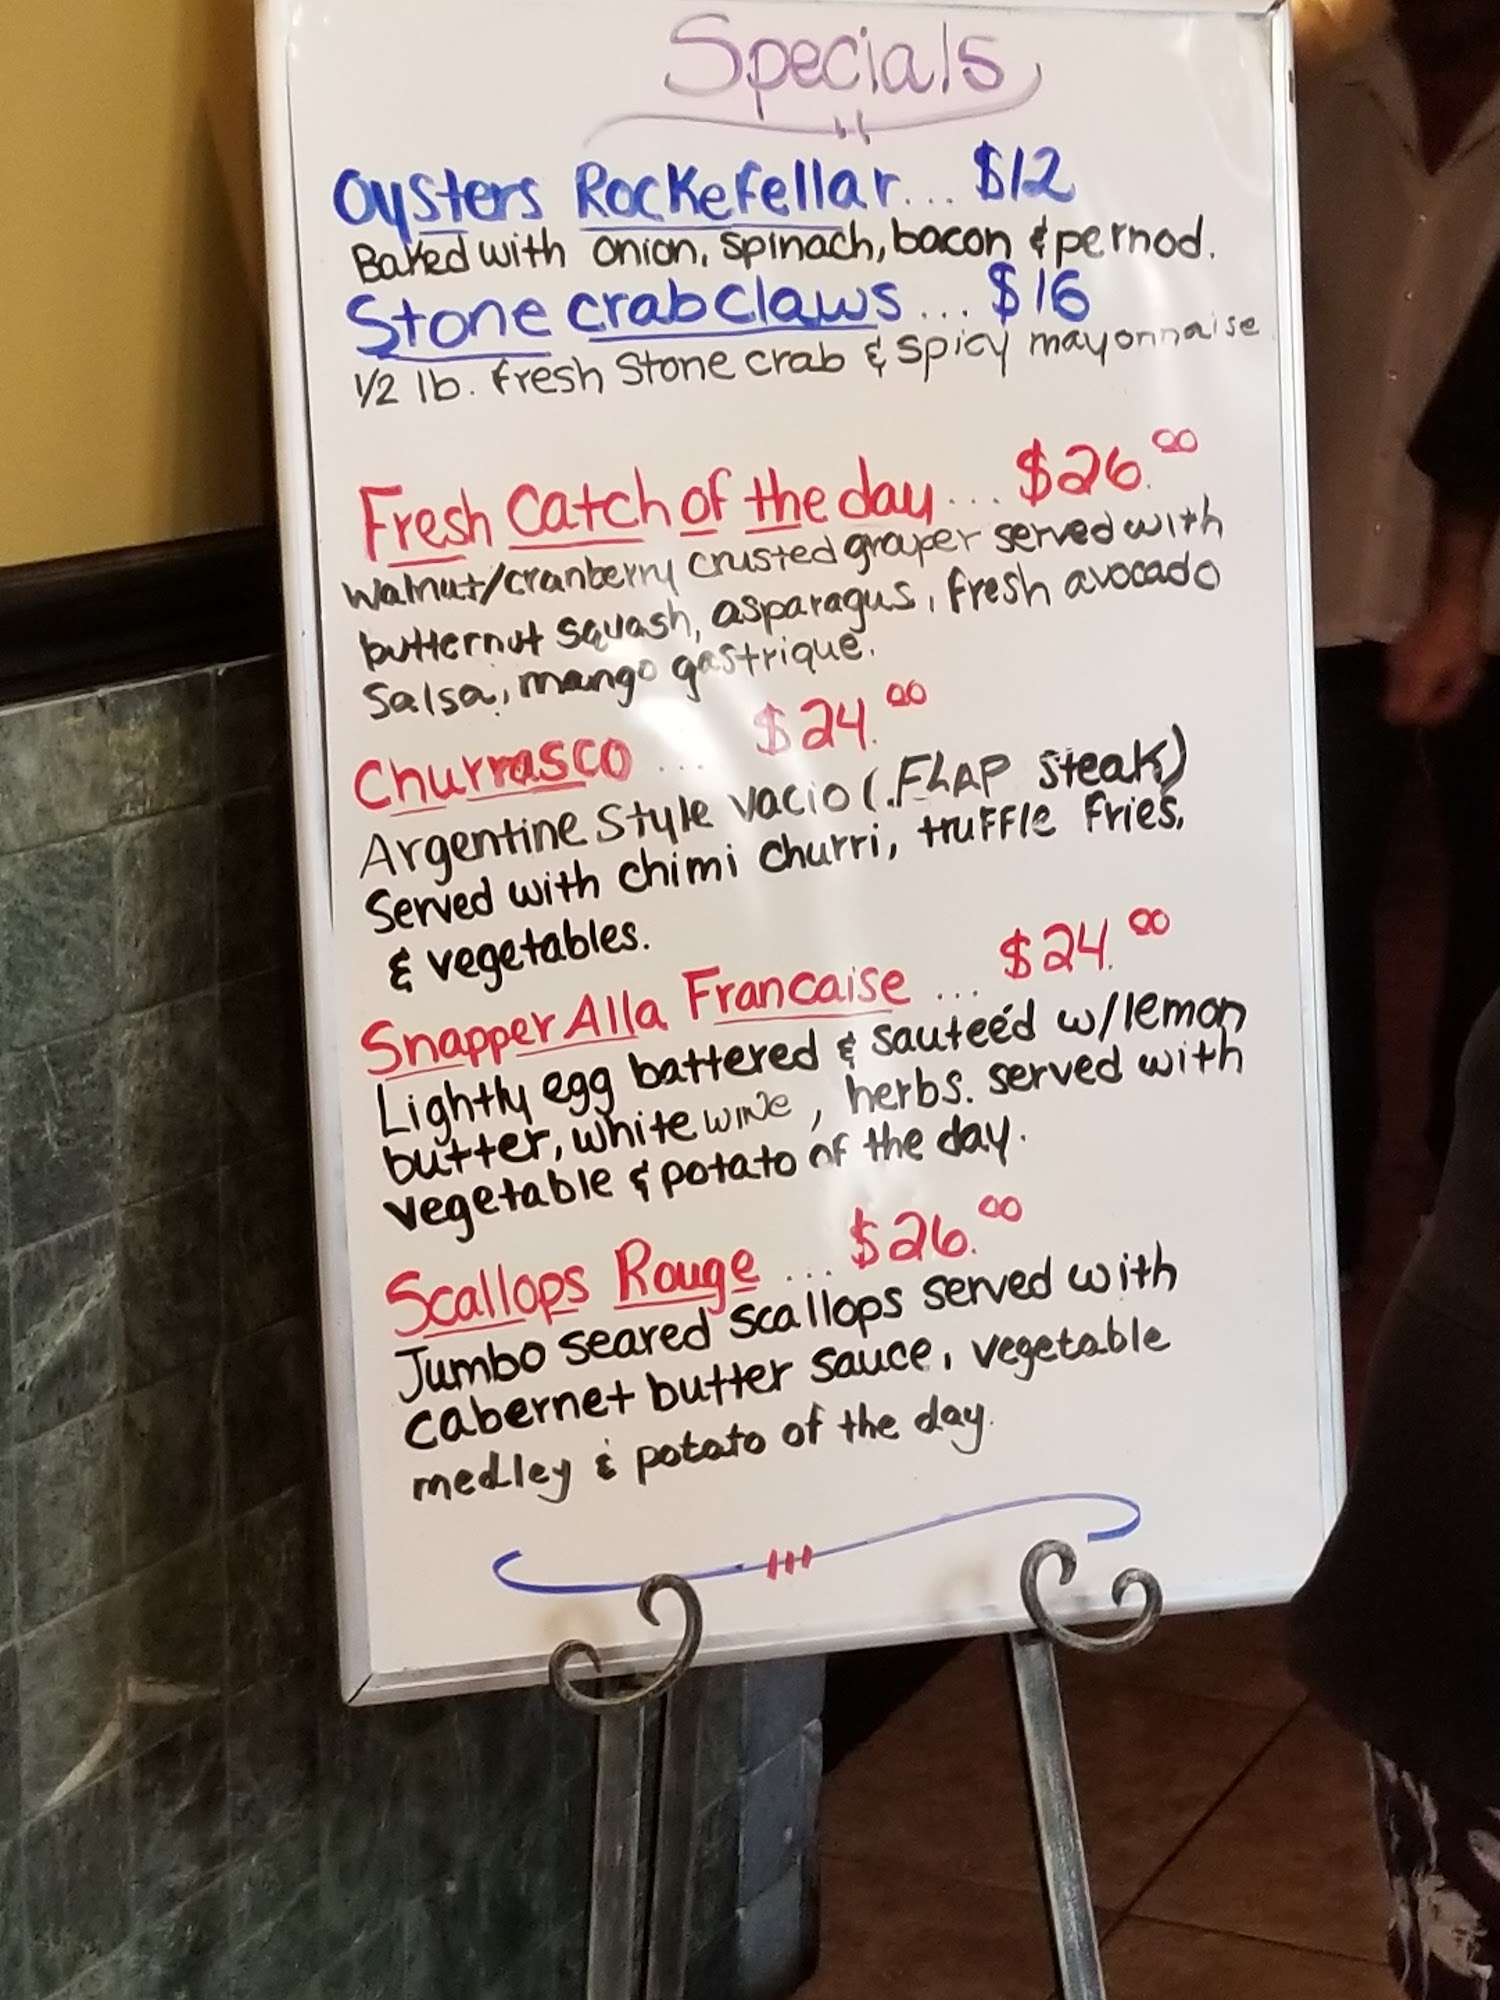 Specials
Oysters Rockefellar... $12
Baked with onion, spinach, bacon & pernod.
Stone crab claws ... $16
1/2 lb. fresh stone crab & spicy mayonnaise
Fresh Catch of the day ... $26.00
Walnut/cranberry crusted graper served with
butternut squash, asparagus, fresh avocado
Salsa, mango gastrique.
Churrasco ... $24.00
Argentine Style vacio (.FLAP steak)
Served with chimi churri, truffle fries,
& vegetables.
Snapper Alla Francaise ... $24.00
Lightly egg battered & sauteéd w/lemon
butter, white wine, herbs. served with
vegetable & potato of the day.
Scallops Rouge ... $26.00
Jumbo seared scallops served with
cabernet butter sauce, vegetable
medley & potato of the day.